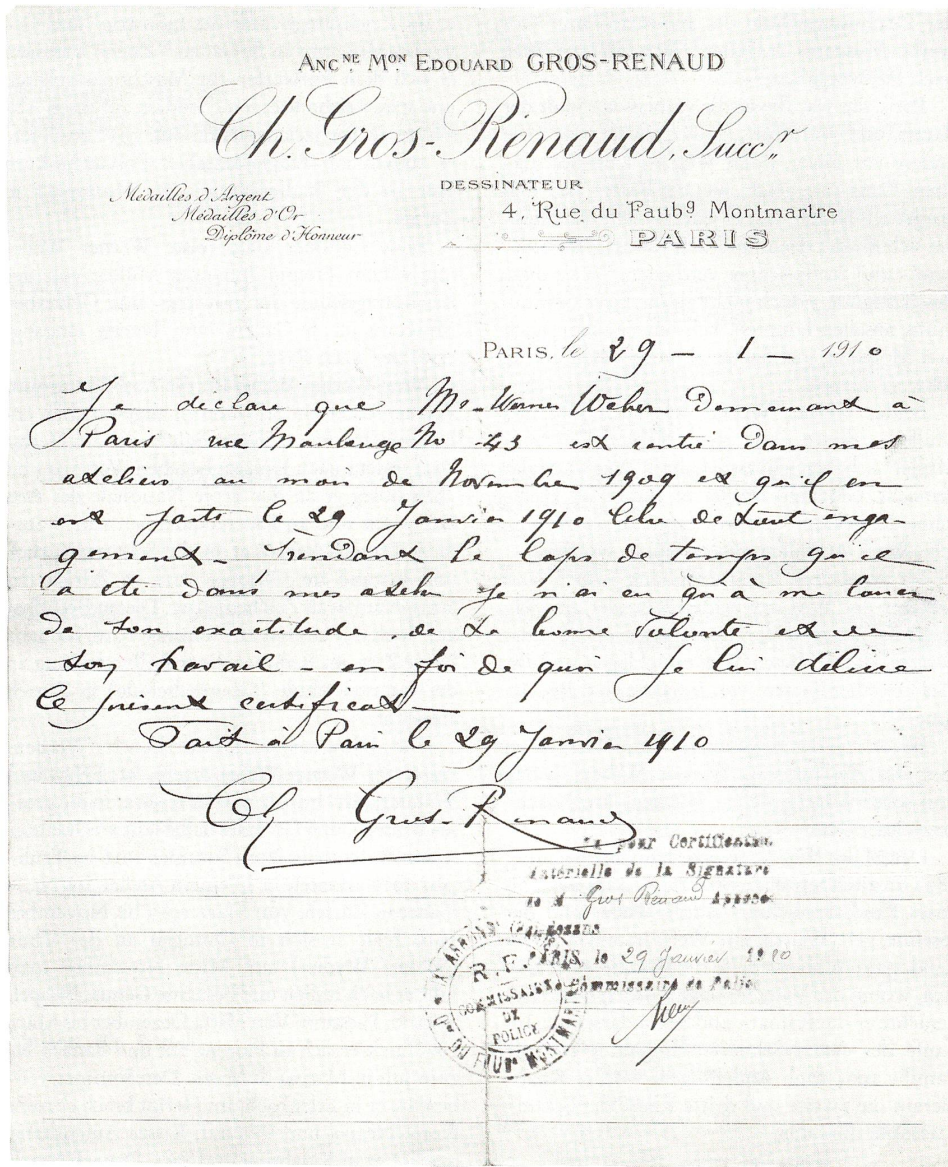 ANCNE MON EDOUARD GROS-RENAUD
Ch. Gros-Renaud, Succr
DESSINATEUR
Médailles d'Argent
Médailles d'Or
Diplôme d'Honneur
4, Rue du Faubg Montmartre
PARIS
PARIS, le 29 – 1 – 1910
Je déclare que Mr Werner Weber Demeurant à
Paris rue Maubeuge No 43 est entré dans mes
ateliers au mois de Novembre 1909 et qu'il en
est sorti le 29 Janvier 1910 libre de tout enga-
gement – Pendant le laps de temps qu'il
a été dans mes atelier je n'ai eu qu'à me louer
de son exactitude, de sa bonne volonté et de
son travail – en foi de quoi je lui délivre
le présent certificat –
Fait à Paris le 29 Janvier 1910
Ch Gros-Renaud
pour Certification
matérielle de la Signature
de M Gros Renaud Apposée
PARIS, le 29 Janvier 1910
Commissaire de Police
R.F.
COMMISSAIRE
DE
POLICE
DU FAUBG MONTMARTRE